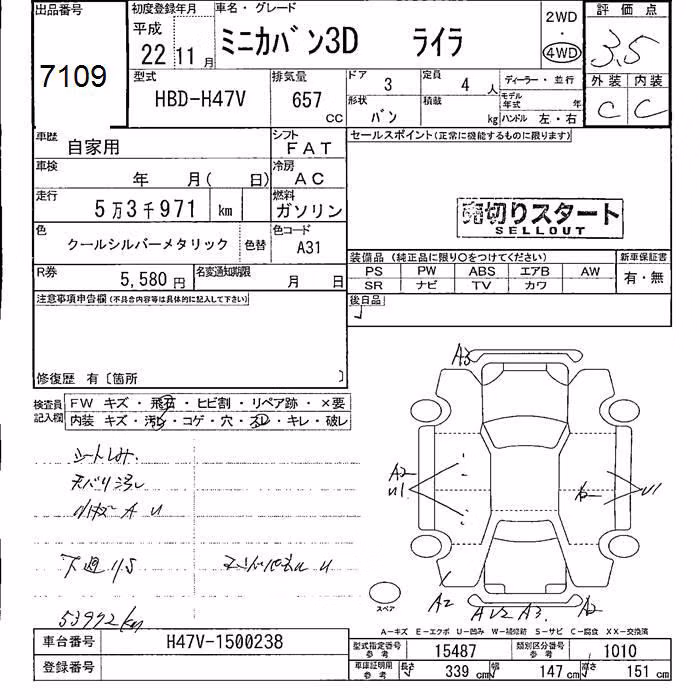 出品番号
7109
初度登録年月
平成
22 11月
車名・グレード
ミニカバン3D ライラ
2WD
・
4WD
評価点
3.5
型式
HBD-H47V
排気量
657
CC
ドア 3
定員 4 人
ディーラー・並行
形状 バン
積載 kg
モデル年式 年
ハンドル 左・右
外装 内装
C C
車歴
自家用
シフト
FAT
車検
年 月( 日)
冷房
AC
走行
5万3千971 km
燃料
ガソリン
色
クールシルバーメタリック
色替
色コード
A31
R券
5,580円
名変通知期限
月 日
セールスポイント(正常に機能するものに限ります)
売切りスタート
SELLOUT
装備品(純正品に限り○をつけてください)
新車保証書
PS PW ABS エアB AW
SR ナビ TV カワ
有・無
後日品
注意事項申告欄(不具合内容等は具体的に記入して下さい)
修復歴 有〔箇所 〕
検査員
記入欄
FW キズ・飛石・ヒビ割・リペア跡・×要
内装 キズ・汚れ・コゲ・穴・スレ・キレ・破レ
シートしみ
天バリ汚レ
A U
下廻りS
U
53972km
A3
A2
U1
U1
A2
A3
A2
スペア
A-キズ E-エクボ U-凹み W-補修跡 S-サビ C-腐食 XX-交換済
車台番号
H47V-1500238
登録番号
型式指定番号
参考
15487
類別区分番号
参考
1010
車庫証明用
参考
長さ 339 cm
幅 147 cm
高さ 151 cm